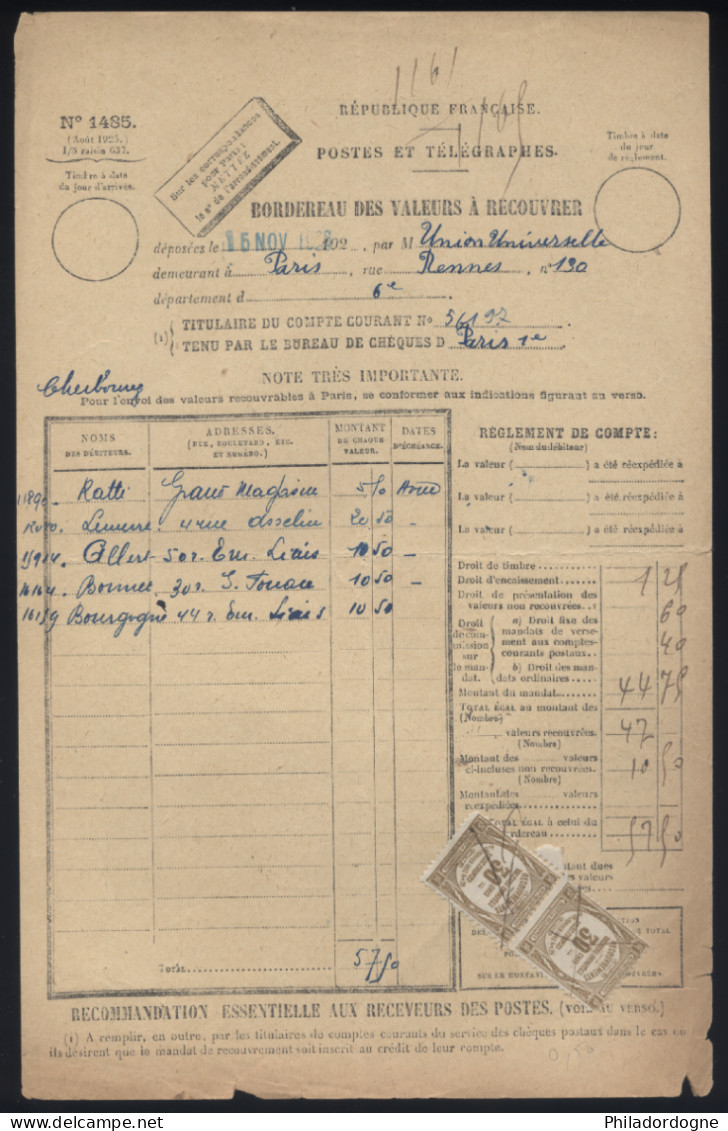 1161
1165
N° 1485.
(Août 1925.)
1/3 raisin 637.
RÉPUBLIQUE FRANÇAISE.
POSTES ET TÉLÉGRAPHES.
Timbre à date
du jour d'arrivée.
Timbre à date
du jour
de règlement.
Sur les correspondances
pour Paris
METTEZ
le n° de l'arrondissement.
BORDEREAU DES VALEURS À RECOUVRER
déposées le 15 NOV 192 par M Union Universelle
demeurant à Paris, rue Rennes, n° 130
département d 6e
(1) { TITULAIRE DU COMPTE COURANT N° 56197
TENU PAR LE BUREAU DE CHÈQUES D Paris 1e
Cherbourg
NOTE TRÈS IMPORTANTE.
Pour l'envoi des valeurs recouvrables à Paris, se conformer aux indications figurant au verso.
NOMS
DES DÉBITEURS.
ADRESSES.
(RUE, BOULEVARD, ETC.
ET NUMÉRO.)
MONTANT
DE CHAQUE
VALEUR.
DATES
D'ÉCHÉANCE.
Ratti Grand Magasin 5 50
4 rue Asselin 20 50 -
15914 Allert 50 r. Em. Liais 10 50 -
16164 Bonnec 30 r. 10 50 -
16159 Bourgogne 44 r. Em. Liais 10 50
TOTAL 57 50
RÈGLEMENT DE COMPTE :
(Nom du débiteur)
La valeur ( ) a été réexpédiée à
La valeur ( ) a été réexpédiée à
La valeur ( ) a été réexpédiée à
Droit de timbre
Droit d'encaissement 1 25
Droit de présentation des
valeurs non recouvrées 60
Droit de commission sur le mandat.
a) Droit fixe des
mandats de verse-
ment aux comptes-
courants postaux 40
b) Droit des man-
dats ordinaires
Montant du mandat 44 75
TOTAL ÉGAL au montant des
(Nombre)
valeurs recouvrées. 47
(Nombre)
Montant des valeurs
ci-incluses non recouvrées. 10 50
(Nombre)
Montant des valeurs
réexpédiées
TOTAL ÉGAL à celui du
bordereau 57 50
30
30
RECOMMANDATION ESSENTIELLE AUX RECEVEURS DES POSTES. (VOIR AU VERSO.)
(1) A remplir, en outre, par les titulaires de comptes courants du service des chèques postaux dans le cas où
ils désirent que le mandat de recouvrement soit inscrit au crédit de leur compte.
delcampe.net
Philadordogne